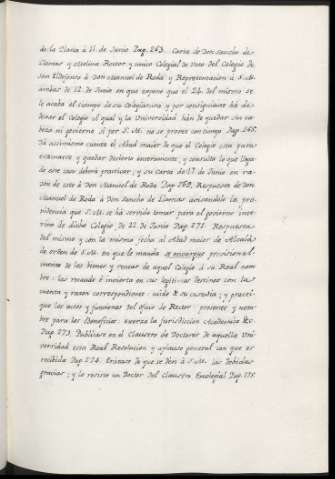 de la Iglesia à 11 de Junio Pag. 263. Carta de Don Sancho de
Llamas y Molina Rector y unico Colegial de Voto del Colegio de
San Ildefonso à Don Manuel de Roda y Representacion à S. M.
ambas de 12 de Junio en que expone que el 24 del mismo se
le acaba el tiempo de su Colegiatura y por consiguiente hà de
dexar el Colegio al qual y la Universidad han de quedar sin ca-
beza ni govierno si por S. M. no se provee con tiempo Pag. 265.
Dà asimismo cuenta el Abad maior de que el Colegio està para
evacuarse y quedar desierto enteramente, y consulta lo que llega-
do este caso deberà practicar; y su Carta de 17 de Junio en ra-
zon de esto à Don Manuel de Roda Pag. 269. Respuesta de Don
Manuel de Roda à Don Sancho de Llamas avisandole la pro-
videncia que S. M. se hà servido tomar para el govierno inte-
rino de dicho Colegio, de 22 de Junio Pag. 271. Respuesta
del mismo y con la misma fecha al Abad maior de Alcalà
de orden de S. M. en que le manda se encargue provisional-
mente de los bienes y rentas de aquel Colegio à su Real nom-
bre: las recaude è invierta en sus legitimos destinos con la
cuenta y razon correspondiente: cuide de su custodia; y practi-
que los actos y funciones del oficio de Rector: presente y nom-
bre para los Beneficios: exerza la jurisdiccion Academica &c.
Pag. 273. Publicase en el Claustro de Doctores de aquella Uni-
versidad esta Real Resolucion y aplauso general con que es
recibida Pag. 274. Tratase de que se dèn à S. M. las debidas
gracias; y lo resiste un Doctor del Claustro Excolegial Pag. 275.